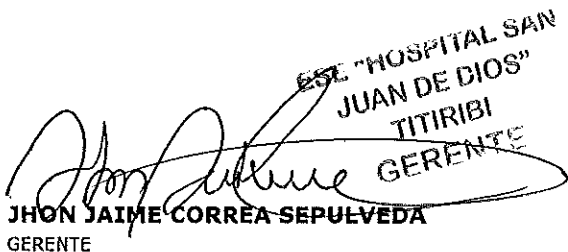 ESE "HOSPITAL SAN
JUAN DE DIOS"
TITIRIBI
GERENTE
JHON JAIME CORREA SEPULVEDA
GERENTE